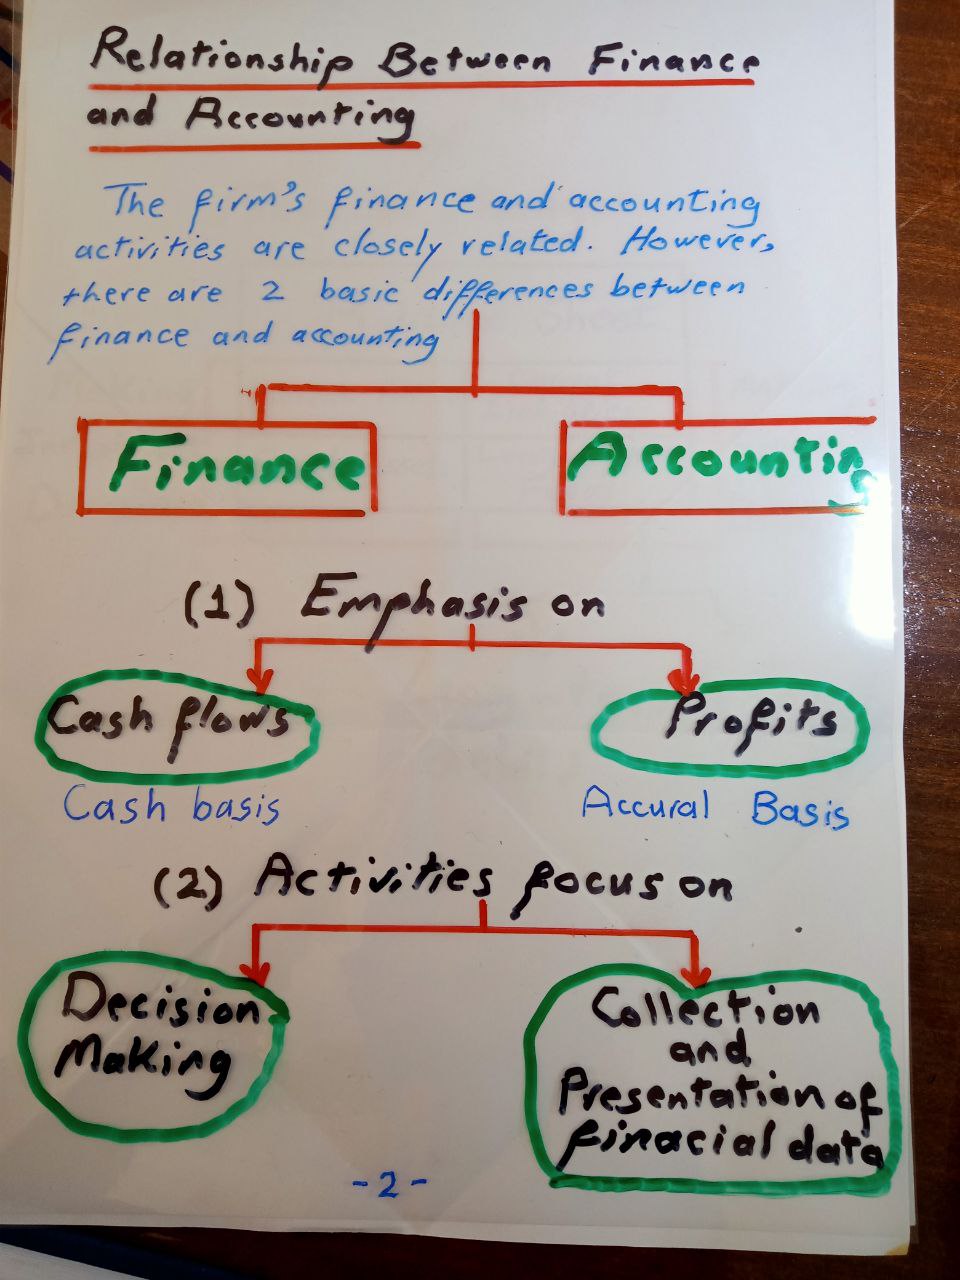 Relationship Between Finance
and Accounting
The firm's finance and accounting
activities are closely related. However,
there are 2 basic differences between
finance and accounting
Finance Accounting
(1) Emphasis on
Cash flows Profits
Cash basis Accural Basis
(2) Activities focus on
Decision Collection
Making and
Presentation of
finacial data
-2-